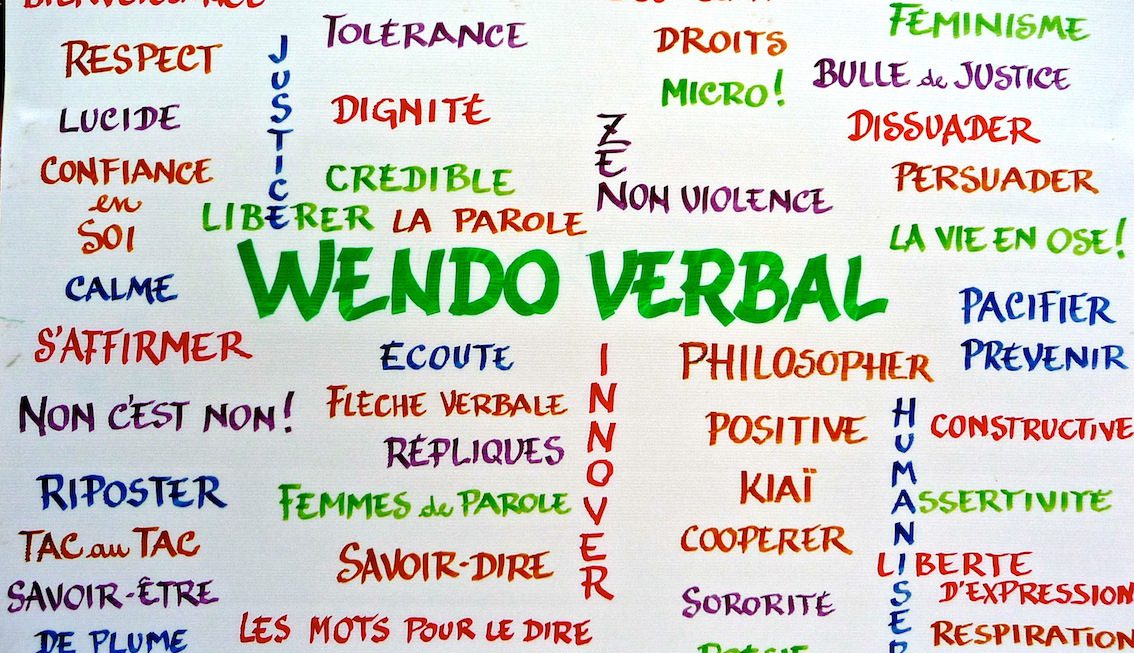 BIENVEILLANCE
RESPECT
LUCIDE
CONFIANCE
en
SOI
CALME
S'AFFIRMER
NON C'EST NON!
RIPOSTER
TAC au TAC
SAVOIR-ÊTRE
DE PLUME
JUSTICE
TOLÉRANCE
DIGNITÉ
CRÉDIBLE
LIBÉRER LA PAROLE
WENDO VERBAL
ÉCOUTE
FLÈCHE VERBALE
RÉPLIQUES
FEMMES de PAROLE
SAVOIR-DIRE
LES MOTS POUR LE DIRE
INNOVER
DROITS
MICRO!
ZEN
NON VIOLENCE
FÉMINISME
BULLE de JUSTICE
DISSUADER
PERSUADER
LA VIE EN OSE!
PACIFIER
PRÉVENIR
PHILOSOPHER
POSITIVE
KIAÏ
COOPÉRER
SORORITÉ
HUMANISER
CONSTRUCTIVE
ASSERTIVITÉ
LIBERTÉ
D'EXPRESSION
RESPIRATION